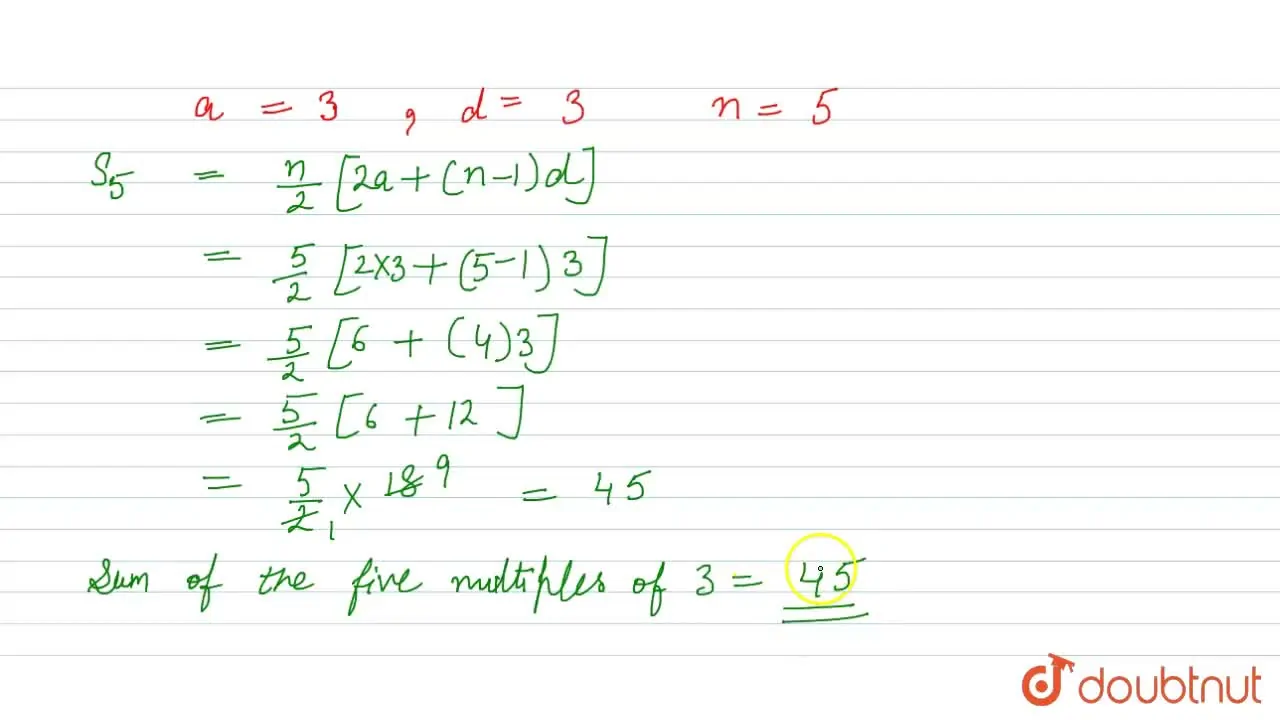 a = 3 , d = 3 n = 5
S₅ = n/2 [2a + (n-1)d]
= 5/2 [2x3 + (5-1) 3]
= 5/2 [6 + (4)3]
= 5/2 [6 + 12 ]
= 5/2 1 x 18 9 = 45
Sum of the five multiples of 3 = 45
doubtnut